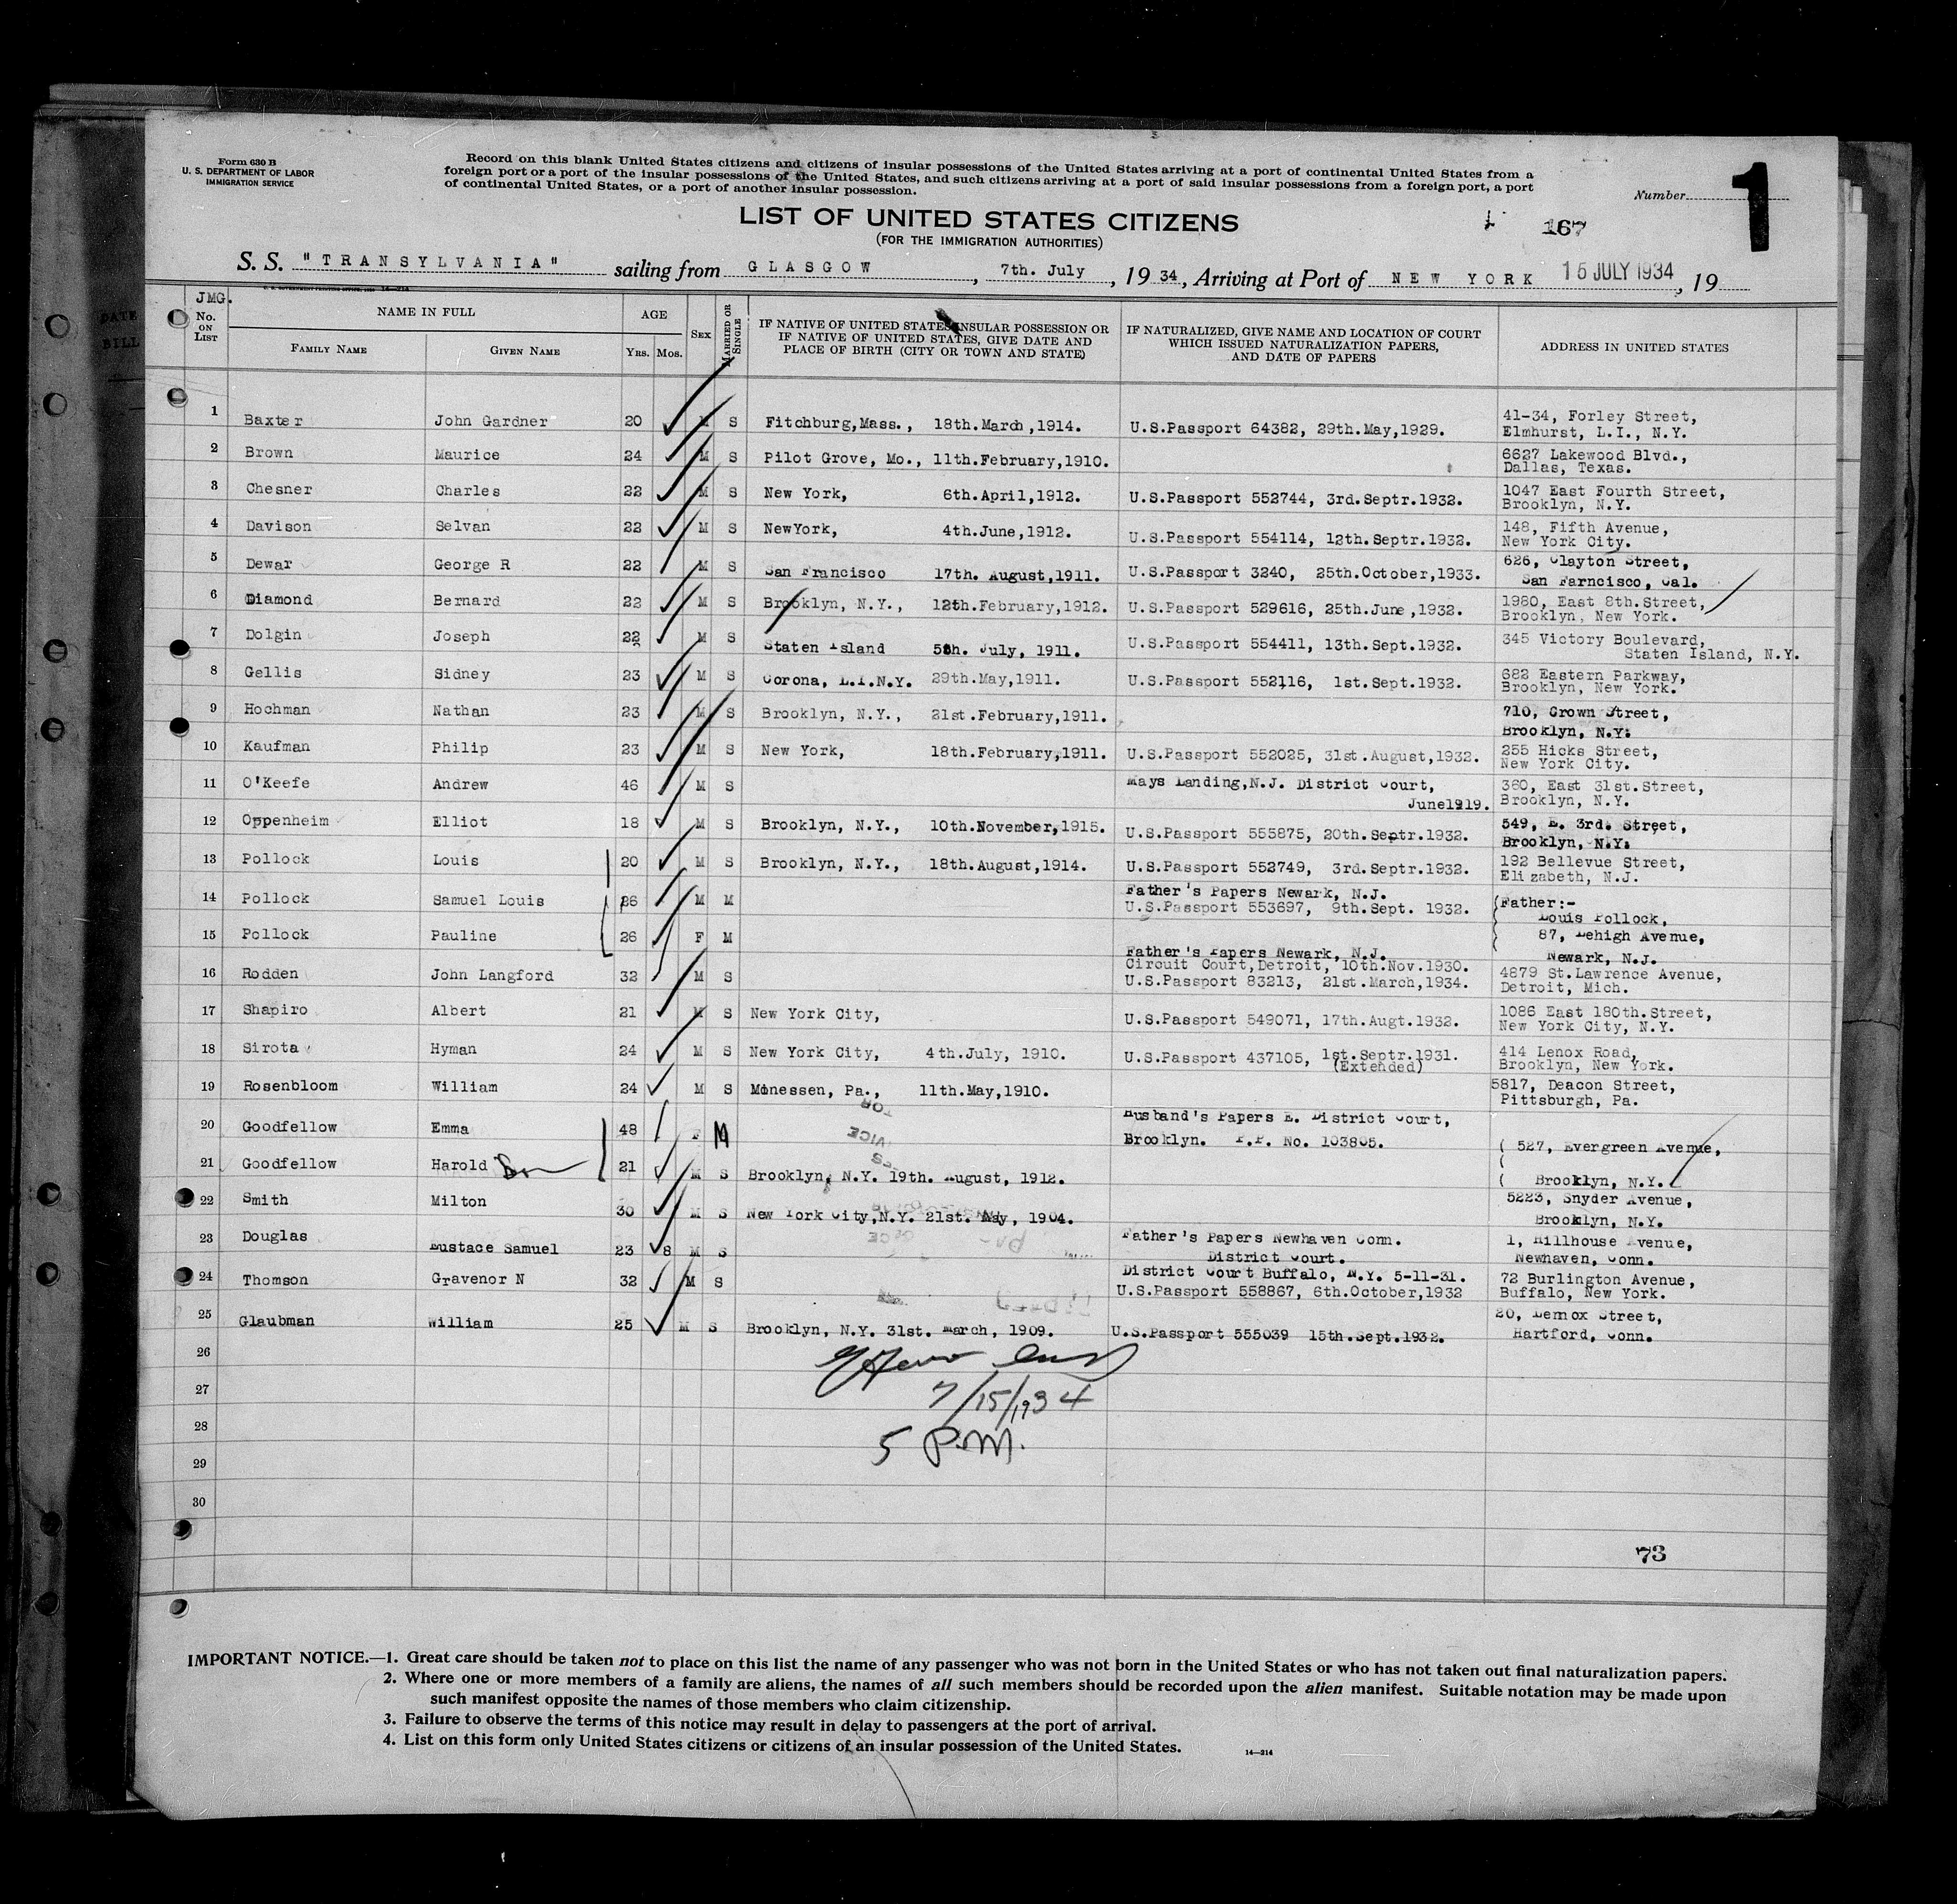 Form 630 B
U. S. DEPARTMENT OF LABOR
IMMIGRATION SERVICE
Record on this blank United States citizens and citizens of insular possessions of the United States arriving at a port of continental United States from a
foreign port or a port of the insular possessions of the United States, and such citizens arriving at a port of said insular possessions from a foreign port, a port
of continental United States, or a port of another insular possession.
Number 1
LIST OF UNITED STATES CITIZENS
(FOR THE IMMIGRATION AUTHORITIES)
167
S. S. "TRANSYLVANIA" sailing from GLASGOW, 7th. July, 1934, Arriving at Port of NEW YORK 15 JULY 1934, 19
JMG.
No. ON LIST
NAME IN FULL
FAMILY NAME GIVEN NAME
AGE
YRS. MOS.
SEX
MARRIED OR SINGLE
IF NATIVE OF UNITED STATES INSULAR POSSESSION OR
IF NATIVE OF UNITED STATES, GIVE DATE AND
PLACE OF BIRTH (CITY OR TOWN AND STATE)
IF NATURALIZED, GIVE NAME AND LOCATION OF COURT
WHICH ISSUED NATURALIZATION PAPERS,
AND DATE OF PAPERS
ADDRESS IN UNITED STATES
1 Baxter John Gardner 20 M S Fitchburg,Mass., 18th.March,1914. U.S.Passport 64382, 29th.May,1929. 41-34, Forley Street,
Elmhurst, L.I., N.Y.
2 Brown Maurice 24 M S Pilot Grove, Mo., 11th.February,1910. 6627 Lakewood Blvd.,
Dallas, Texas.
3 Chesner Charles 22 M S New York, 6th.April,1912. U.S.Passport 552744, 3rd.Septr.1932. 1047 East Fourth Street,
Brooklyn, N.Y.
4 Davison Selvan 22 M S NewYork, 4th.June,1912. U.S.Passport 554114, 12th.Septr.1932. 148, Fifth Avenue,
New York City.
5 Dewar George R 22 M S San Francisco 17th. August,1911. U.S.Passport 3240, 25th.October,1933. 626, Clayton Street,
San Farncisco, Cal.
6 Diamond Bernard 22 M S Brooklyn, N.Y., 12th.February,1912. U.S.Passport 529616, 25th.June,1932. 1980, East 8th.Street,
Brooklyn, New York.
7 Dolgin Joseph 22 M S Staten Island 5th. July, 1911. U.S.Passport 554411, 13th.Sept.1932. 345 Victory Boulevard,
Staten Island, N.Y.
8 Gellis Sidney 23 M S Corona, L.I.N.Y. 29th.May,1911. U.S.Passport 552116, 1st.Sept.1932. 682 Eastern Parkway,
Brooklyn, New York.
9 Hochman Nathan 23 M S Brooklyn, N.Y., 21st.February,1911. 710, Crown Street,
Brooklyn, N.Y.
10 Kaufman Philip 23 M S New York, 18th.February,1911. U.S.Passport 552025, 31st.August,1932. 255 Hicks Street,
New York City.
11 O'Keefe Andrew 46 M S Mays Landing,N.J. District Court,
June1919. 360, East 31st.Street,
Brooklyn, N.Y.
12 Oppenheim Elliot 18 M S Brooklyn, N.Y., 10th.November,1915. U.S.Passport 555875, 20th.Septr.1932. 549, E. 3rd. Street,
Brooklyn, N.Y.
13 Pollock Louis 20 M S Brooklyn, N.Y., 18th.August,1914. U.S.Passport 552749, 3rd.Septr.1932. 192 Bellevue Street,
Elizabeth, N.J.
14 Pollock Samuel Louis 26 M M Father's Papers Newark, N.J.
U.S.Passport 553697, 9th.Sept. 1932. Father:-
Louis Pollock,
15 Pollock Pauline 26 F M 87, Lehigh Avenue,
Father's Papers Newark, N.J. Newark, N.J.
16 Rodden John Langford 32 M S Circuit Court,Detroit, 10th.Nov.1930.
U.S.Passport 83213, 21st.March,1934. 4879 St.Lawrence Avenue,
Detroit, Mich.
17 Shapiro Albert 21 M S New York City, U.S.Passport 549071, 17th.Augt.1932. 1086 East 180th.Street,
New York City, N.Y.
18 Sirota Hyman 24 M S New York City, 4th.July, 1910. U.S.Passport 437105, 1st.Septr.1931.
(Extended) 414 Lenox Road,
Brooklyn, New York.
19 Rosenbloom William 24 M S Monessen, Pa., 11th.May,1910. 5817, Deacon Street,
Pittsburgh, Pa.
20 Goodfellow Emma 48 F M Husband's Papers E. District Court,
Brooklyn. P.P. No. 103805. ( 527, Evergreen Avenue,
21 Goodfellow Harold Son 21 M S Brooklyn, N.Y. 19th. August, 1912. ( Brooklyn, N.Y.
22 Smith Milton 30 M S New York City,N.Y. 21st. May, 1904. 5223, Snyder Avenue,
Brooklyn, N.Y.
23 Douglas Eustace Samuel 23 8 M S Father's Papers Newhaven Conn.
District Court. 1, Hillhouse Avenue,
Newhaven, Conn.
24 Thomson Gravenor N 32 M S District Court Buffalo, N.Y. 5-11-31.
U.S.Passport 558867, 6th.October,1932 72 Burlington Avenue,
Buffalo, New York.
25 Glaubman William 25 M S Brooklyn, N.Y. 31st. March, 1909. U.S.Passport 555039 15th.Sept.1932. 20, Lemox Street,
Hartford, Conn.
26
27 7/15/1934
28 5 P.M.
29
30
73
IMPORTANT NOTICE.—1. Great care should be taken not to place on this list the name of any passenger who was not born in the United States or who has not taken out final naturalization papers.
2. Where one or more members of a family are aliens, the names of all such members should be recorded upon the alien manifest. Suitable notation may be made upon
such manifest opposite the names of those members who claim citizenship.
3. Failure to observe the terms of this notice may result in delay to passengers at the port of arrival.
4. List on this form only United States citizens or citizens of an insular possession of the United States.
14—214